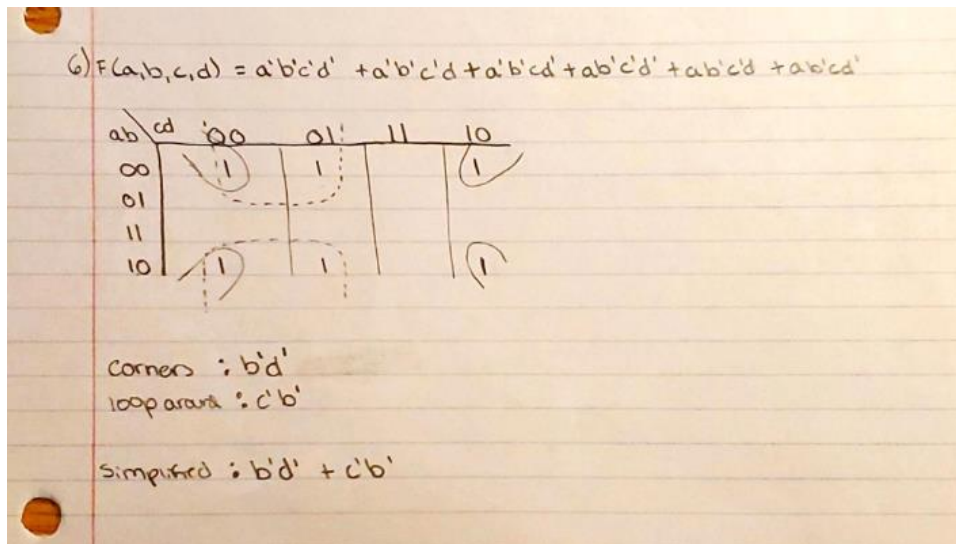 6) F(a,b,c,d) = a'b'c'd' + a'b'c'd + a'b'cd' + ab'c'd' + ab'c'd + ab'cd'
ab \ cd 00 01 11 10
00 1 1 1
01
11
10 1 1 1
corners : b'd'
loop around : c'b'
Simplified : b'd' + c'b'